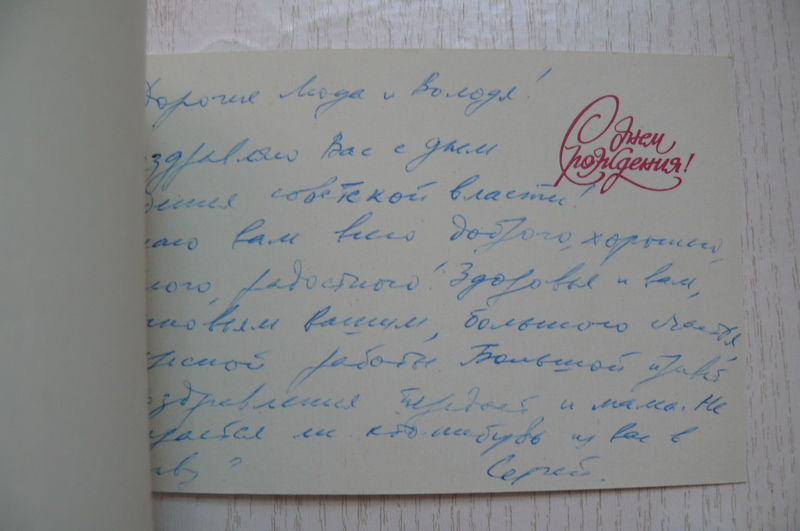 Дорогие Люда и Володя!
С днем
рождения!
здравляю Вас с днем
дения советской власти!
лаю вам всего доброго, хорошего,
лого, радостного! Здоровья и вам,
новьям вашим, большого счастья,
ресной работы. Большой привет
оздравления передает и мама. Не
рается ли кто-нибудь из вас в
кву?
Сергей.